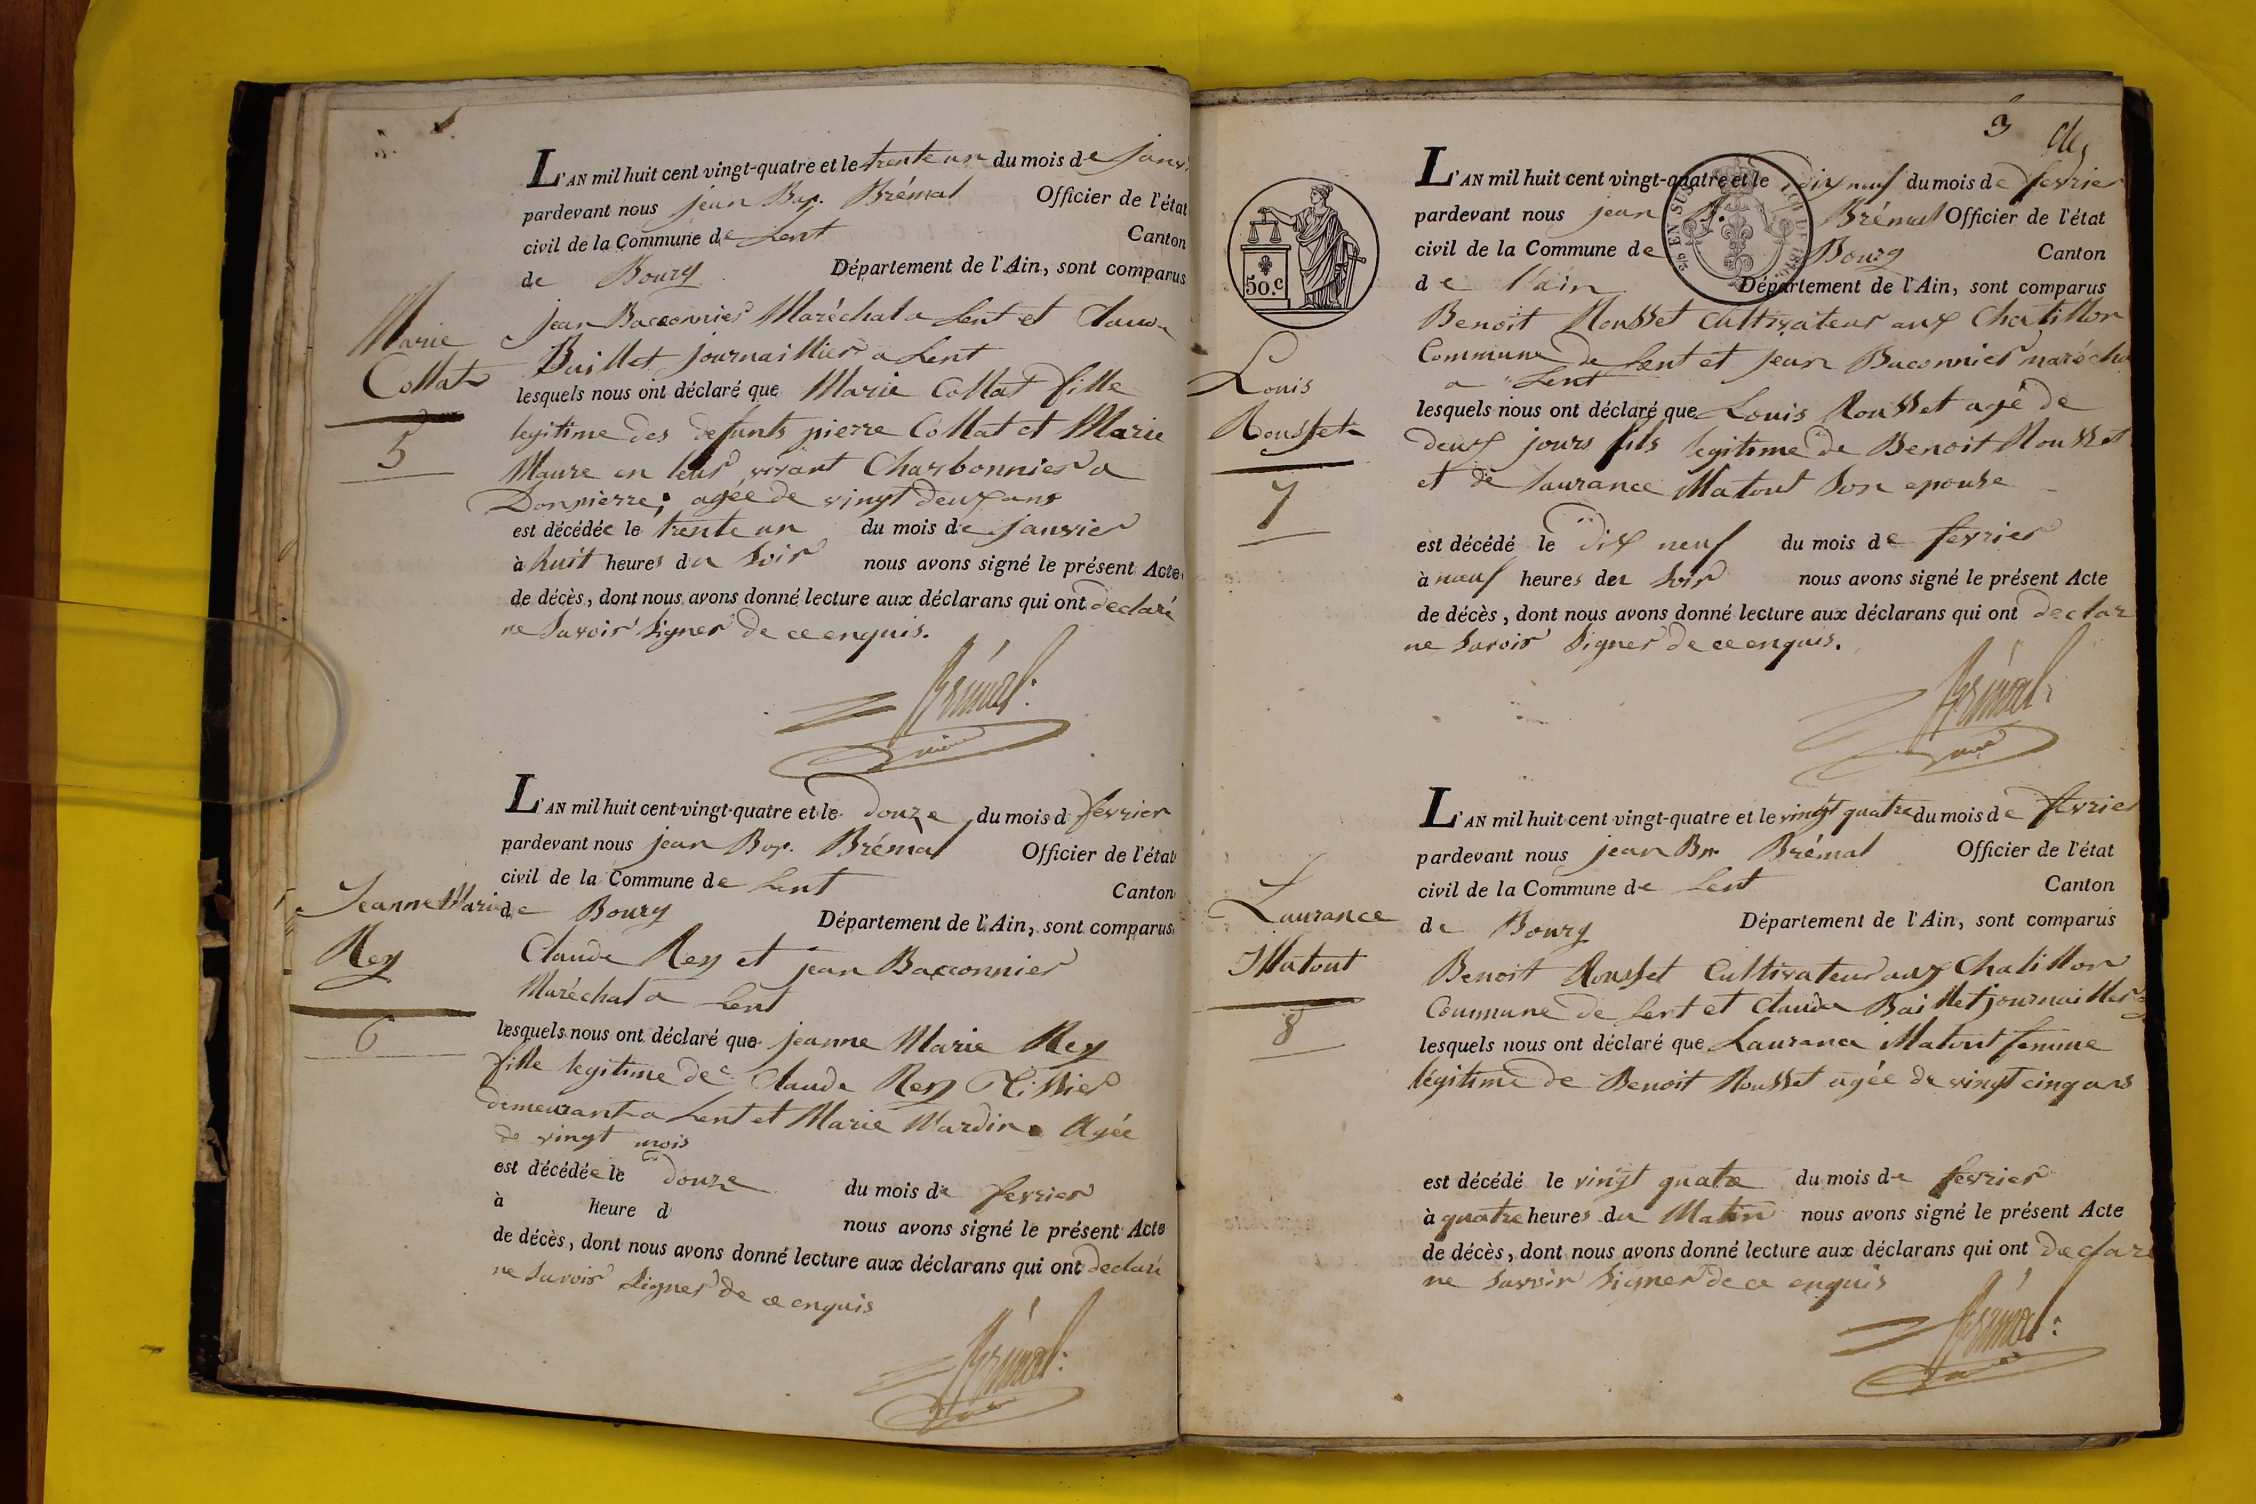 L'AN mil huit cent vingt-quatre et le trente un du mois de Janv
pardevant nous jean Bap. Brémal Officier de l'état
civil de la Commune de Lent Canton
de Bourg Département de l'Ain, sont comparus
jean Bacconnier Maréchal a Lent et Claude
Baillet journaillier a Lent
Marie
Collat
5
lesquels nous ont déclaré que Marie Collat fille
legitime des defunts pierre Collat et Marie
Maure en leur vivant Charbonnier a
Donpierre; agée de vingt deux ans
est décédée le trente un du mois de janvier
à huit heures du soir nous avons signé le présent Acte
de décès, dont nous avons donné lecture aux déclarans qui ont declaré
ne Savoir Signer de ce enquis.
Brémal
maire
L'AN mil huit cent vingt-quatre et le douze du mois d fevrier
pardevant nous jean Bap. Brémal Officier de l'état
civil de la Commune de Lent Canton
de Bourg Département de l'Ain, sont comparus
Jeanne Marie
Rey
6
Claude Rey et jean Bacconnier
Maréchal a Lent
lesquels nous ont déclaré que jeanne Marie Rey
fille legitime de Claude Rey Tissier
demeurant a Lent et Marie Nardin Agée
de vingt mois
est décédée le douze du mois de fevrier
à heure d nous avons signé le présent Acte
de décès, dont nous avons donné lecture aux déclarans qui ont declaré
ne Savoir Signer de ce enquis
Brémal
3
50.c
L'AN mil huit cent vingt-quatre et le dix neuf du mois de fevrier
pardevant nous jean B. Brémal Officier de l'état
civil de la Commune de Bourg Canton
de l'ain Département de l'Ain, sont comparus
Benoit Rousset Cultivateur aux Chatillon
Commune de Lent et jean Baconnier marécha
a Lent
Louis
Rousset
7
lesquels nous ont déclaré que Louis Rousset agé de
deux jours fils legitime de Benoit Rousset
et de Laurance Matout Son epouse
est décédé le dix neuf du mois de fevrier
à neuf heures du Soir nous avons signé le présent Acte
de décès, dont nous avons donné lecture aux déclarans qui ont declar
ne Savoir Signer de ce enquis.
Brémal
maire
L'AN mil huit cent vingt-quatre et le vingt quatre du mois de fevrier
pardevant nous jean Bap. Brémal Officier de l'état
civil de la Commune de Lent Canton
de Bourg Département de l'Ain, sont comparus
Laurance
Matout
8
Benoit Rousset Cultivateur aux Chatillon
Commune de Lent et Claude Baillet journaillier
lesquels nous ont déclaré que Laurance Matout femme
légitime de Benoit Rousset agée de vingt cinq ans
est décédé le vingt quatre du mois de fevrier
à quatre heures du Matin nous avons signé le présent Acte
de décès, dont nous avons donné lecture aux déclarans qui ont declaré
ne Savoir Signer de ce enquis
Brémal